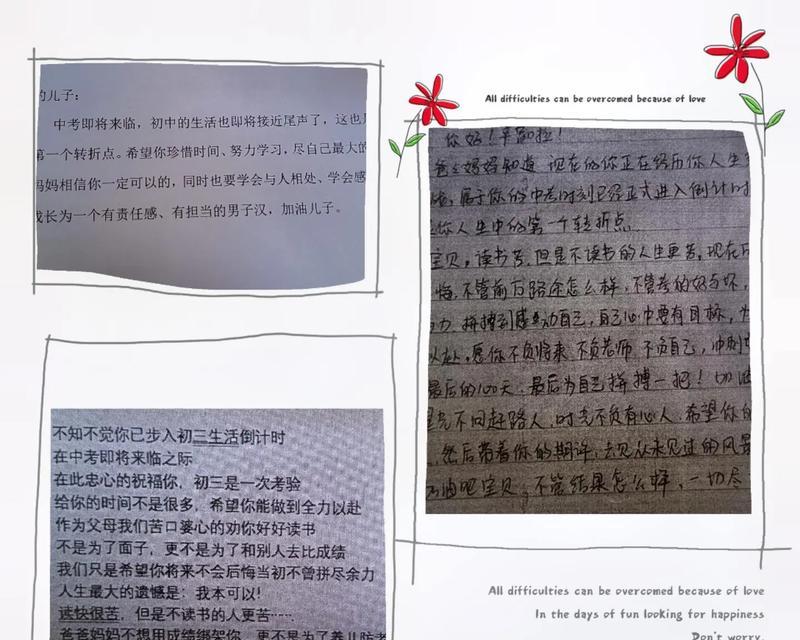 的儿子：
中考即将来临，初中的生活也即将接近尾声了，这也
第一个转折点。希望你珍惜时间、努力学习，尽自己最大的
妈妈相信你一定可以的，同时也要学会与人相处、学会感
成长为一个有责任感、有担当的男子汉，加油儿子。
不知不觉你已步入初三生活倒计时
在中考即将来临之际
在此忠心的祝福你，初三是一次考验
给你的时间不是很多，希望你能做到全力以赴
作为父母我们苦口婆心的劝你好好读书
不是为了面子，更不是为了和别人去比成绩
我们只是希望你将来不会后悔当初不曾拼尽余力
人生最大的遗憾是：我本可以！
读快很苦，但是不读书的人更苦……
爸爸妈妈不想用成绩绑架你，更不是为了养儿防老
All difficulties can be overcomed because of love
你好！辛苦啦！
爸爸妈妈知道 现在的你正在经历你人生
属于你的中考时刻已经正式进入倒计时
你人生中的第一个转折点
宝贝，读书苦，但是不读书的人生更苦，现在
悔，不管前方路途怎么样，不管考的好与坏，
力，拼搏到感动自己，自己心中要有目标，
以赴，愿你不负将来 不负老师 不负自己，冲刺
最后的100天，最后为自己拼搏一把！
不问赶路人，时光不负有心人，希望你
然后带着你的期许，去见从未见过的风景
加油吧宝贝，不管结果怎么样，一切尽
All difficulties can be overcomed because of love
In the days of fun looking for happiness
Don't worry.